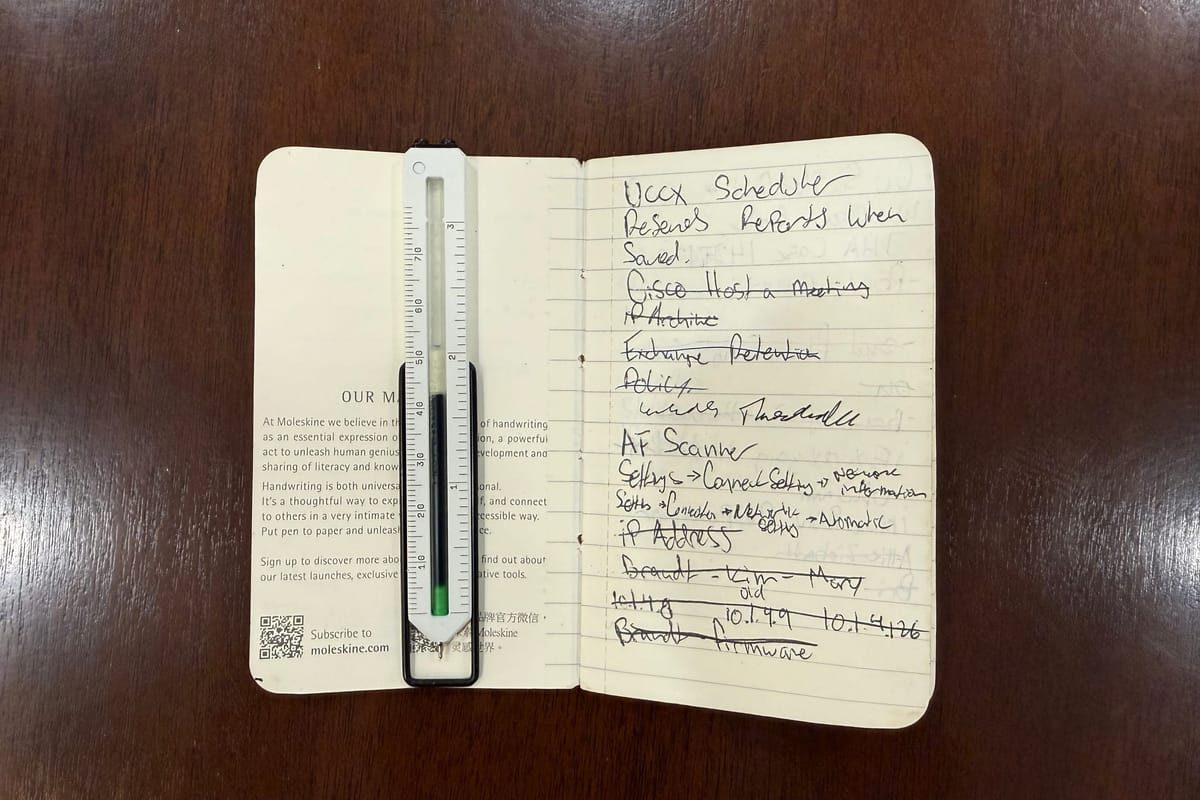 OUR M
At Moleskine we believe in th of handwriting
as an essential expression o on, a powerful
act to unleash human genius evelopment and
sharing of literacy and know
Handwriting is both universa onal.
It's a thoughtful way to exp f, and connect
to others in a very intimate ccessible way.
Put pen to paper and unleas ce.
Sign up to discover more abo find out about
our latest launches, exclusive ative tools.
Subscribe to
moleskine.com
品牌官方微信，
Moleskine
灵感世界。
3
70
60
50
2
40
30
1
20
10
UCCX Scheduler
Resends Reports When
Saved.
Cisco Host a Meeting
iP Archive
Exchange Retention
Policy.
AF Scanner
Settings → Connect Setting → Network information
Setting → Connection → Network Setting → Automatic
iP Address
Brandt - Kim - Mary
old
10.1.4.8 10.1.4.9 10.1.4.126
Brandt Firmware